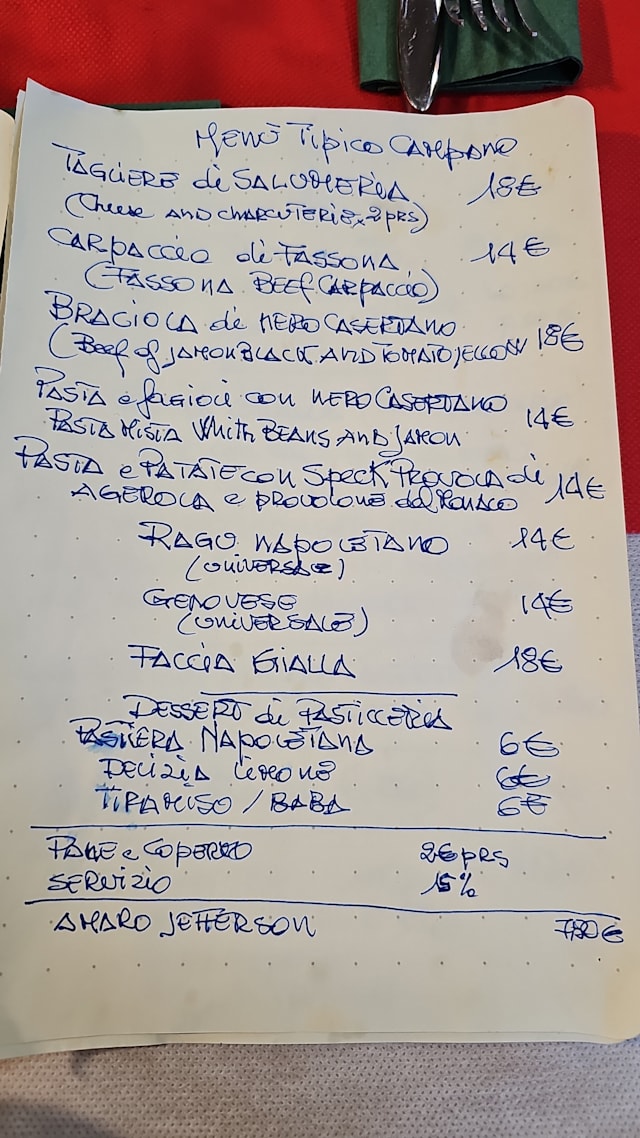 Menù Tipico Campano
TAGLIERE di SALUMERIA 18€
(Cheese AND CHARCUTERIE x 2 prs)
CARPACCIO di FASSONA 14€
(FASSONA BEEF CARPACCIO)
BRACIOLA de NERO CASERTANO 18€
(Beef of JAMON BLACK AND TOMATO JELLOW
PASTA e fagioli con NERO CASERTANO 14€
PASTA MISTA Whith BEANS AND JAMON
PASTA e PATATE con Speck PROVOLA di 14€
AGEROLA e PROVOLONE del Monaco
RAGU NAPOLETANO 14€
(UNIVERSALE)
GENOVESE 14€
(UNIVERSALE)
FACCIA GIALLA 18€
DESSERT di PASTICCERIA
PASTIERA NAPOLETANA 6€
DELIZIA limone 6€
TIRAMISO / BABA 6€
PANE e COPERTO 2€ prs
SERVIZIO 15%
AMARO JEFFERSON